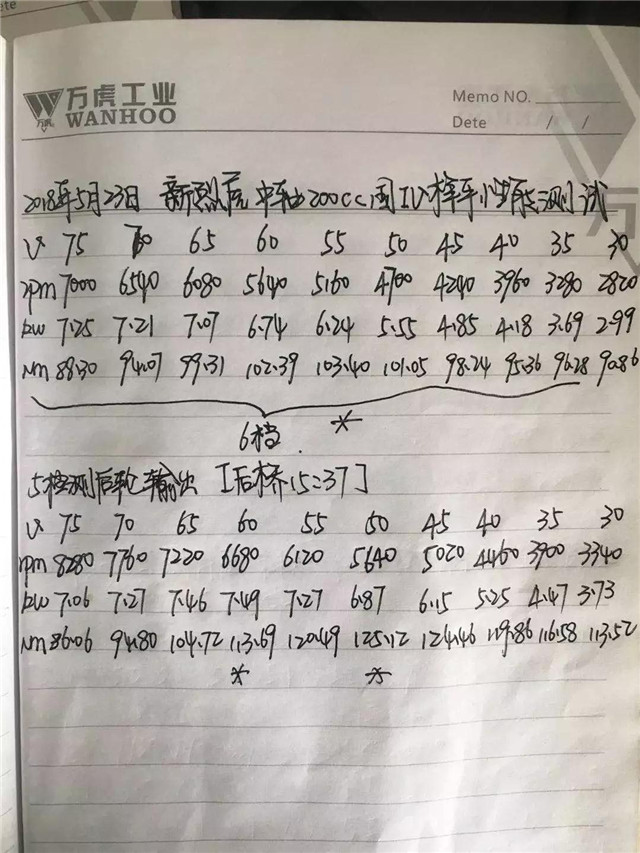 ete
万虎工业
WANHOO
万虎
Memo NO.
Dete / /
2018年5月23日 新烈虎 中轴 200cc 国IV 样车性能测试
V 75 70 65 60 55 50 45 40 35 30
rpm 7000 6540 6080 5640 5160 4700 4240 3960 3280 2820
kw 7.25 7.21 7.07 6.74 6.24 5.55 4.85 4.18 3.69 2.99
Nm 88.30 94.07 99.31 102.39 103.40 101.05 98.24 95.36 96.28 90.86
6档 *
5档测后轮输出 [后桥15:37]
V 75 70 65 60 55 50 45 40 35 30
rpm 8280 7760 7220 6680 6120 5640 5020 4460 3900 3340
kw 7.06 7.27 7.46 7.49 7.27 6.87 6.15 5.25 4.47 3.73
Nm 86.06 94.80 104.72 113.69 120.49 125.12 124.46 119.86 116.58 113.52
* *